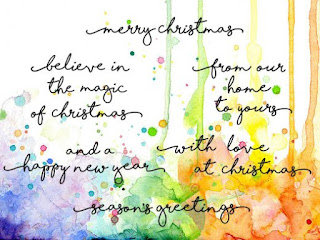 merry christmas
believe in
the magic
of christmas
from our
home
to yours
and a
happy new year
with love
at christmas
season's greetings